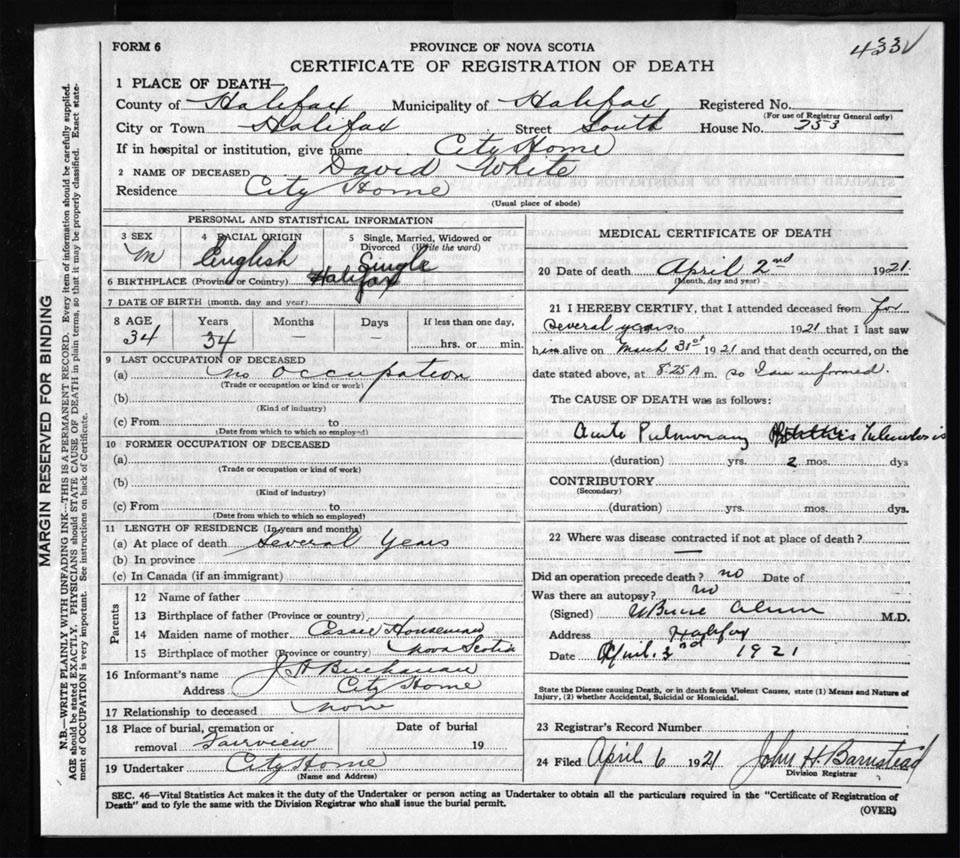 FORM 6
PROVINCE OF NOVA SCOTIA
433
CERTIFICATE OF REGISTRATION OF DEATH
1 PLACE OF DEATH—
County of Halifax Municipality of Halifax Registered No.
(For use of Registrar General only)
City or Town Halifax Street South House No. 753
If in hospital or institution, give name City Home
2 NAME OF DECEASED David White
Residence City Home
(Usual place of abode)
PERSONAL AND STATISTICAL INFORMATION
3 SEX 4 RACIAL ORIGIN 5 Single, Married, Widowed or Divorced (Write the word)
M English Single
6 BIRTHPLACE (Province or Country) Halifax
7 DATE OF BIRTH (month, day and year)
8 AGE Years Months Days If less than one day,
34 34 — — hrs. or min.
9 LAST OCCUPATION OF DECEASED
(a) No occupation
(Trade or occupation or kind or work)
(b)
(Kind of industry)
(c) From to
(Date from which to which so employed)
10 FORMER OCCUPATION OF DECEASED
(a)
(Trade or occupation or kind of work)
(b)
(Kind of industry)
(c) From to
(Date from which to which so employed)
11 LENGTH OF RESIDENCE (In years and months)
(a) At place of death Several Years
(b) In province
(c) In Canada (if an immigrant)
Parents
12 Name of father
13 Birthplace of father (Province or country)
14 Maiden name of mother Cassie
15 Birthplace of mother (Province or country) Nova Scotia
16 Informant's name J A Buchanan
Address City Home
17 Relationship to deceased none
18 Place of burial, cremation or removal Fairview Date of burial 19
19 Undertaker City Home
(Name and Address)
MEDICAL CERTIFICATE OF DEATH
20 Date of death April 2nd 1921
(Month, day and year)
21 I HEREBY CERTIFY, that I attended deceased from for
several years to 1921 that I last saw
him alive on March 31st 1921 and that death occurred, on the
date stated above, at 8.25 A m. so I am informed.
The CAUSE OF DEATH was as follows:
Acute Pulmonary Phthisis Tuberculosis
(duration) yrs. 2 mos. dys
CONTRIBUTORY
(Secondary)
(duration) yrs. mos. dys.
22 Where was disease contracted if not at place of death?
—
Did an operation precede death? no Date of
Was there an autopsy? no
(Signed) M.D.
Address Halifax
Date April 3rd 1921
State the Disease causing Death, or in death from Violent Causes, state (1) Means and Nature of
Injury, (2) whether Accidental, Suicidal or Homicidal.
23 Registrar's Record Number
24 Filed April 6 1921 John H. Barnstead
Division Registrar
SEC. 46—Vital Statistics Act makes it the duty of the Undertaker or person acting as Undertaker to obtain all the particulars required in the "Certificate of Registration of
Death" and to fyle the same with the Division Registrar who shall issue the burial permit.
(OVER)
MARGIN RESERVED FOR BINDING
N.B.—WRITE PLAINLY WITH UNFADING INK—THIS IS A PERMANENT RECORD. Every item of information should be carefully supplied.
AGE should be stated EXACTLY. PHYSICIANS should STATE CAUSE OF DEATH in plain terms, so that it may be properly classified. Exact state-
ment of OCCUPATION is very important. See instructions on back of Certificate.